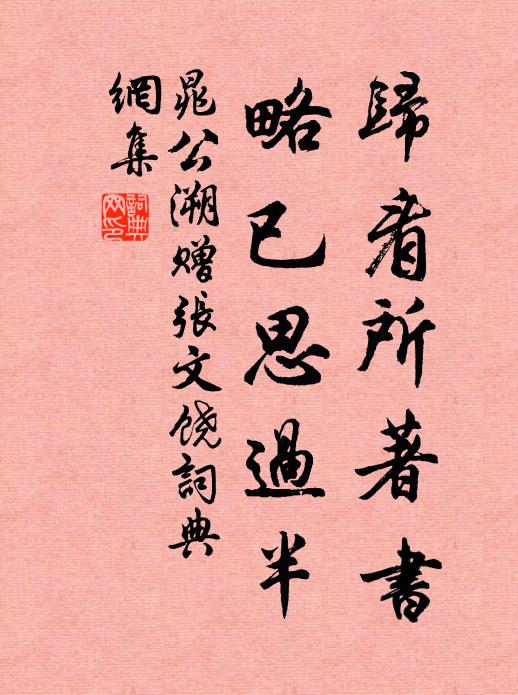 歸看所著書
略已思過半
晁公溯赠張文饶詞典
網集
詞典网印